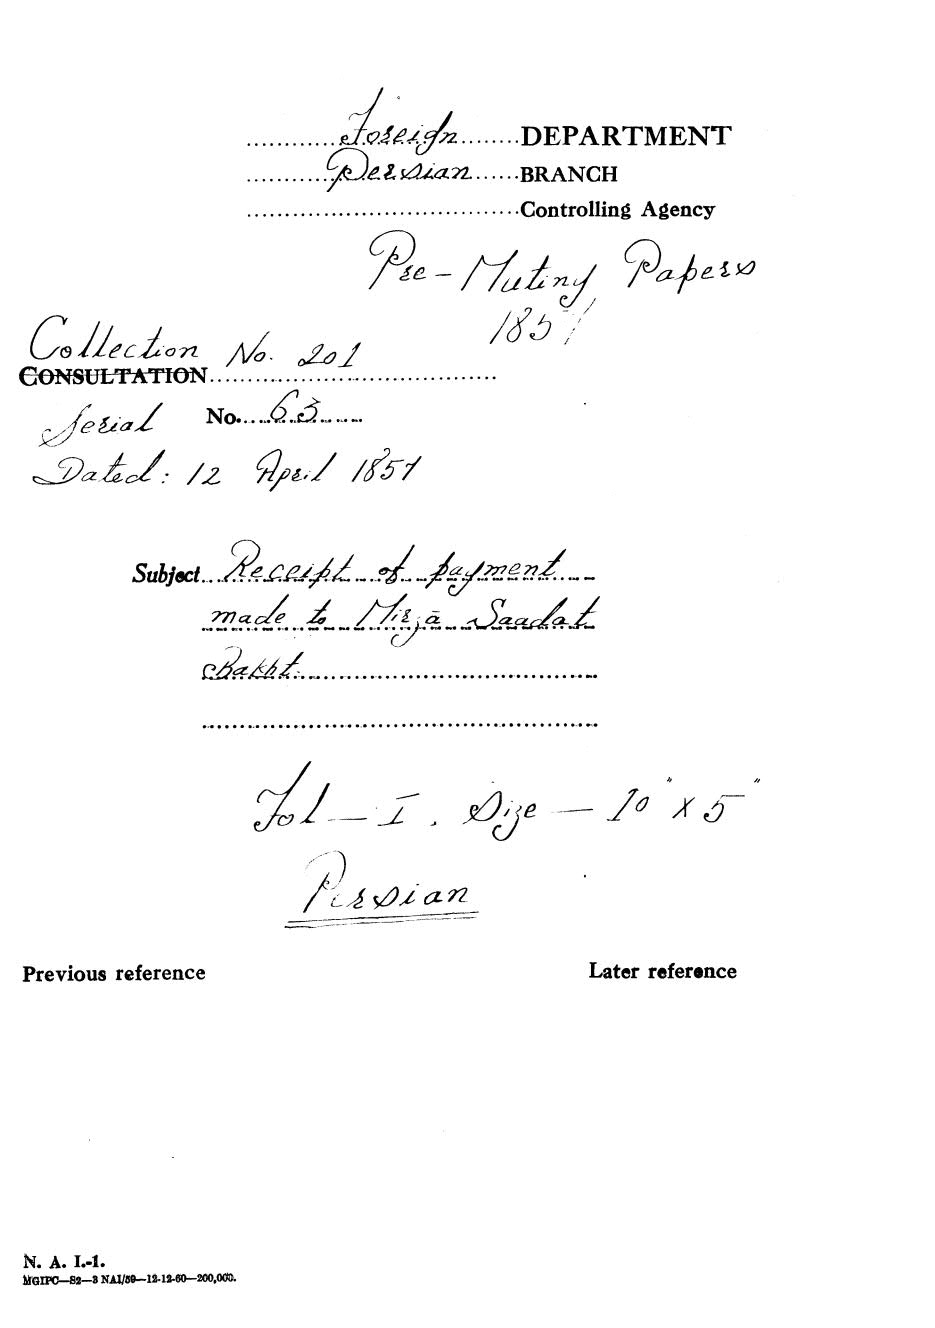 Foreign DEPARTMENT
Persian BRANCH
Controlling Agency
Pre-Mutiny Papers
1857
Collection No. 201
CONSULTATION
Serial No. 63
Dated: 12 April 1857
Subject Receipt of payment
made to Mirzā Saadat
Bakht.
Fol — I. Size — 10" x 5"
Persian
Previous reference Later reference
N. A. I.-1.
MGIPC—S2—3 NAI/59—12-12-60—200,000.